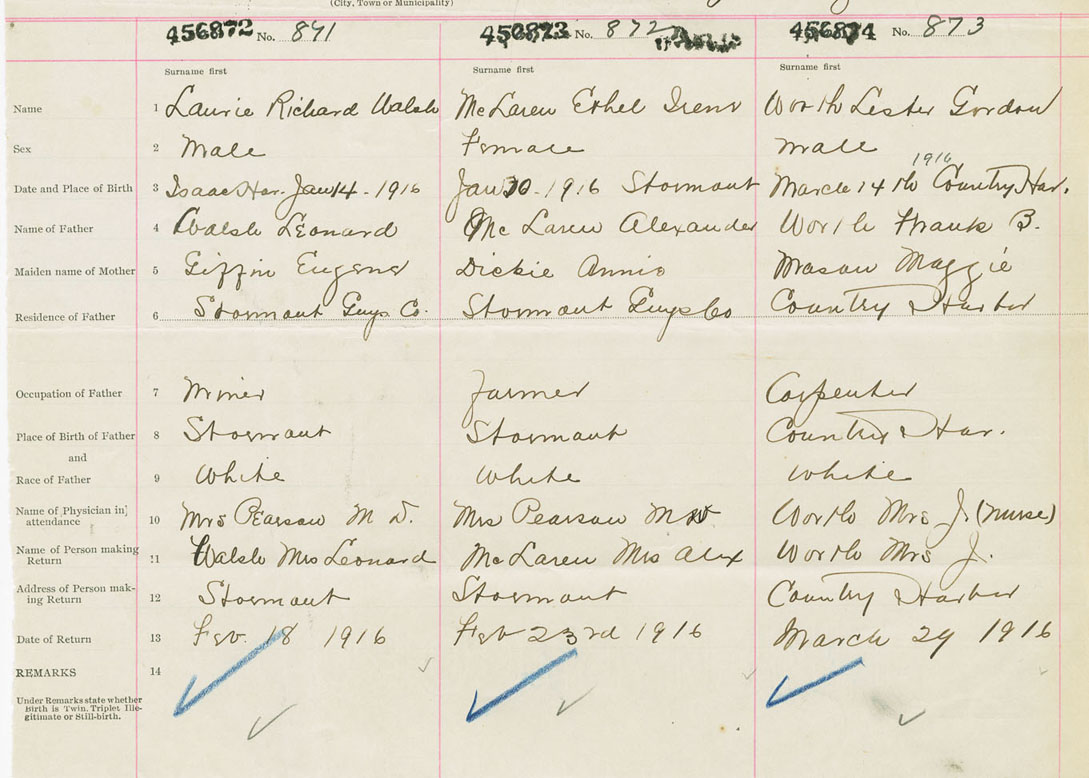 (City, Town or Municipality)
456872 No. 871 456873 No. 872 456874 No. 873
Surname first Surname first Surname first
Name 1 Laurie Richard Walsh McLaren Ethel Irene Worth Lester Gordon
Sex 2 Male Female Male
1916
Date and Place of Birth 3 Isaac Har. Jan 14 - 1916 Jan 30 - 1916 Stormont March 14th Country Har.
Name of Father 4 Walsh Leonard Mc Laren Alexander Worth Frank B.
Maiden name of Mother 5 Giffin Eugene Dickie Annie Mason Maggie
Residence of Father 6 Stormont Guys Co. Stormont Guys Co Country Harbor
Occupation of Father 7 Miner Farmer Carpenter
Place of Birth of Father 8 Stormont Stormont Country Har.
and
Race of Father 9 White White White
Name of Physician in attendance 10 Mrs Pearson M D. Mrs Pearson M D Worth Mrs J. (Nurse)
Name of Person making Return 11 Walsh Mrs Leonard McLaren Mrs Alex Worth Mrs J.
Address of Person making Return 12 Stormont Stormont Country Harbor
Date of Return 13 Feb. 18 1916 Feb 23rd 1916 March 29 1916
REMARKS 14
Under Remarks state whether
Birth is Twin. Triplet Ille-
gitimate or Still-birth.